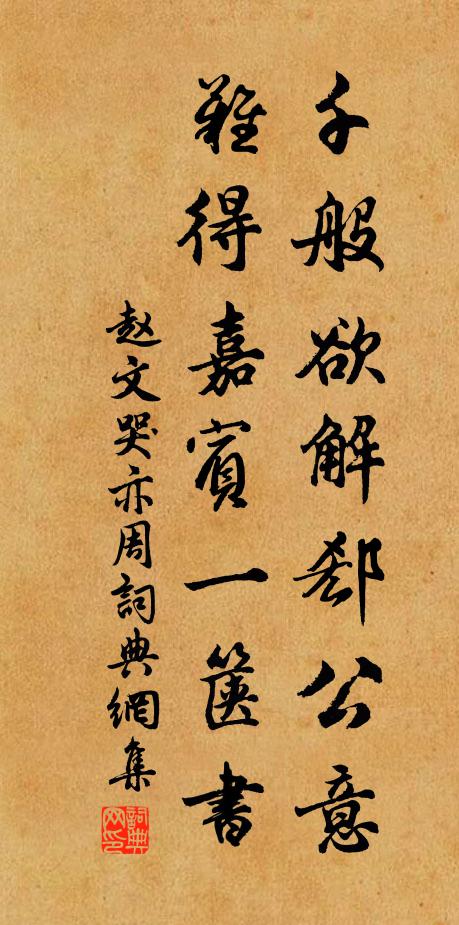 千般欲解郄公意
難得嘉賓一篋書
趙文哭亦周詞典網集
詞典网印